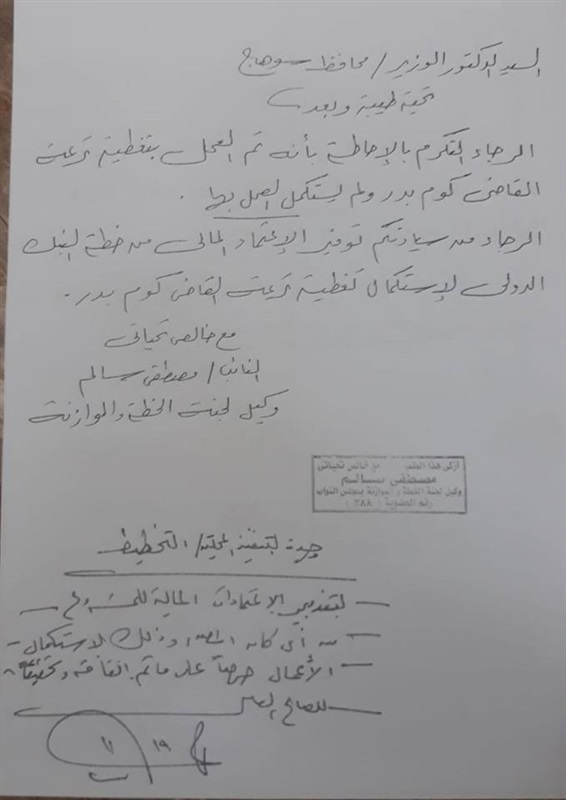 السيد الدكتور الوزير / محافظ سوهاج
تحية طيبة وبعد
الرجاء التكرم بالإحاطة بأنه تم العمل بتغطية ترعة
القاضى كوم بدر ولم يستكمل العمل بها .
الرجاء من سيادتكم توفير الإعتماد المالى من خطة البنك
الدولى لإستكمال تغطية ترعة القاضى كوم بدر .
مع خالص تحياتى
النائب / مصطفى سالم
وكيل لجنة الخطة والموازنة
أزكى هذا الطلب مع خالص تحياتى
مصطفى سالم
وكيل لجنة الخطة والموازنة بمجلس النواب
رقم العضوية ( ٢٨٨ )
وحدة التنمية المحلية / التخطيط
الإعتمادات المالية للمشروع
من أى كان وذلك لاستكمال
الأعمال حرصاً على ما تم إنفاقه وتحقيقاً
للصالح العام
١٩ ١١